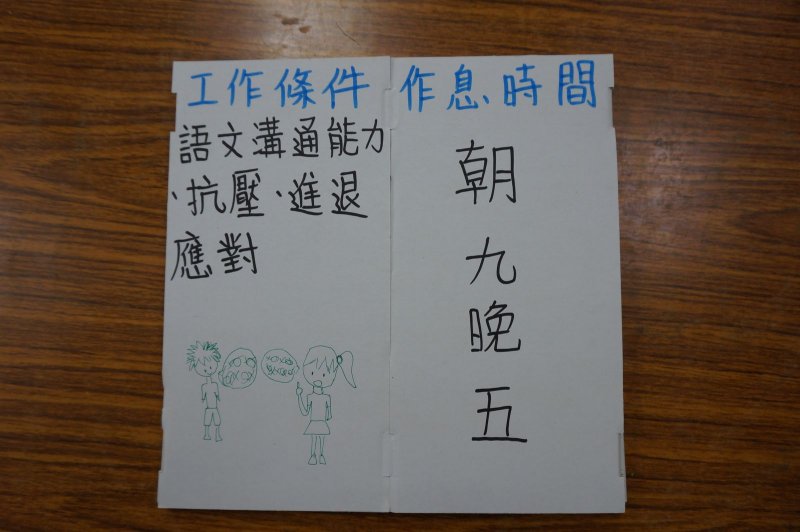 工作條件
語文溝通能力
、抗壓、進退
應對
作息時間
朝
九
晚
五